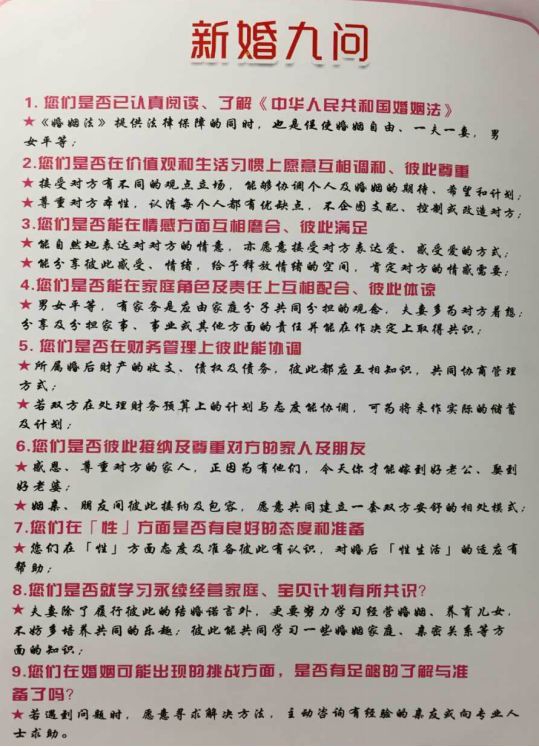 新婚九问
1. 您们是否已认真阅读、了解《中华人民共和国婚姻法》
★《婚姻法》提供法律保障的同时，也是促使婚姻自由、一夫一妻，男
女平等；
2.您们是否在价值观和生活习惯上愿意互相调和、彼此尊重
★接受对方有不同的观点立场，能够协调个人及婚姻的期待、希望和计划；
★尊重对方本性，认清每个人都有优缺点，不企图支配、控制或改造对方；
3.您们是否能在情感方面互相磨合、彼此满足
★能自然地表达对对方的情意，亦愿意接受对方表达爱、感受爱的方式；
★能分享彼此感受、情绪，给予释放情绪的空间，肯定对方的情感需要；
4.您们是否能在家庭角色及责任上互相配合、彼此体谅
★男女平等，有家务是应由家庭分子共同分担的观念，夫妻多为对方着想；
分享及分担家事、事业或其他方面的责任并能在作决定上取得共识；
5. 您们是否在财务管理上彼此能协调
★所属婚后财产的收支、债权及债务，彼此都应互相知识，共同协商管理
方式；
★若双方在处理财务预算上的计划与态度能协调，可为将来作实际的储蓄
及计划；
6.您们是否彼此接纳及尊重对方的家人及朋友
★感恩、尊重对方的家人，正因为有他们，今天你才能嫁到好老公、娶到
好老婆；
★姻亲、朋友间彼此接纳及包容，愿意共同建立一套双方安舒的相处模式；
7.您们在「性」方面是否有良好的态度和准备
★您们在「性」方面态度及准备彼此有认识，对婚后「性生活」的适应有
帮助；
8.您们是否就学习永续经营家庭、宝贝计划有所共识?
★夫妻除了履行彼此的结婚诺言外，更要努力学习经营婚姻、养育儿女，
不妨多培养共同的乐趣；彼此能共同学习一些婚姻家庭、亲密关系等方
面的知识；
9.您们在婚姻可能出现的挑战方面，是否有足够的了解与准
备了吗?
★若遇到问题时，愿意寻求解决方法，主动咨询有经验的亲友或向专业人
士求助。